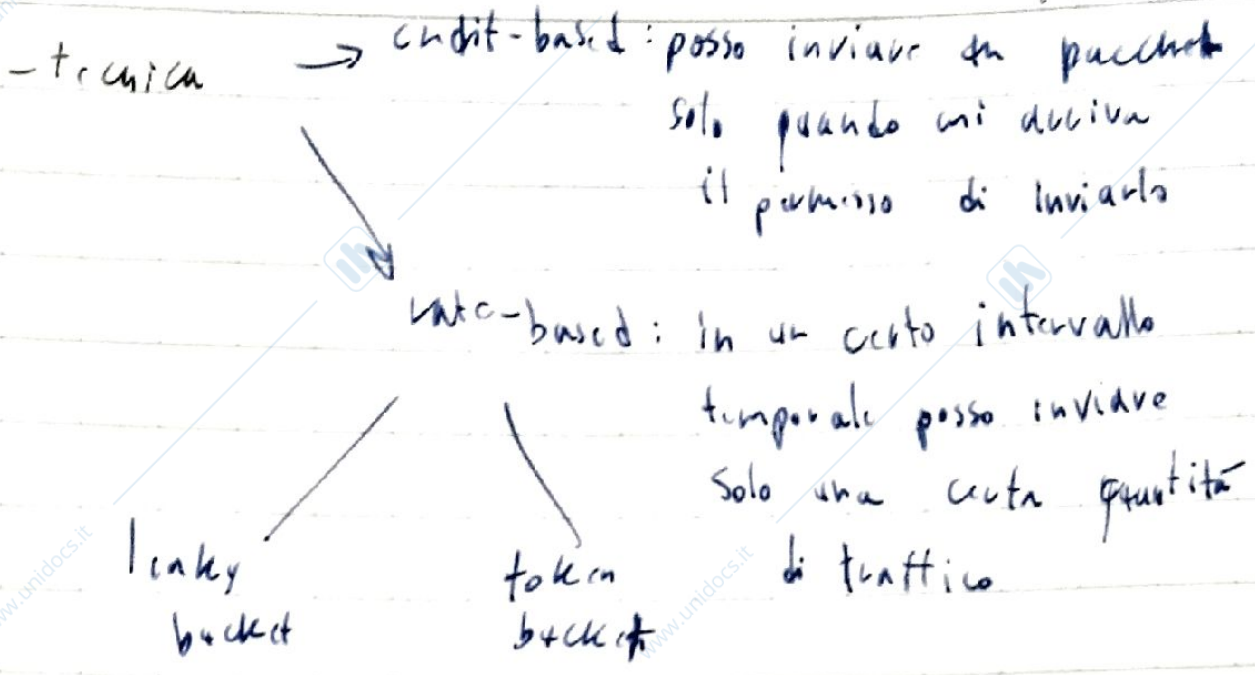 - tecnica → credit-based: posso inviare un pacchetto
solo quando mi arriva
il permesso di inviarlo
rate-based: in un certo intervallo
temporale posso inviare
solo una certa quantità
di traffico
leaky
bucket
token
bucket
www.unidocs.it
www.unidocs.it